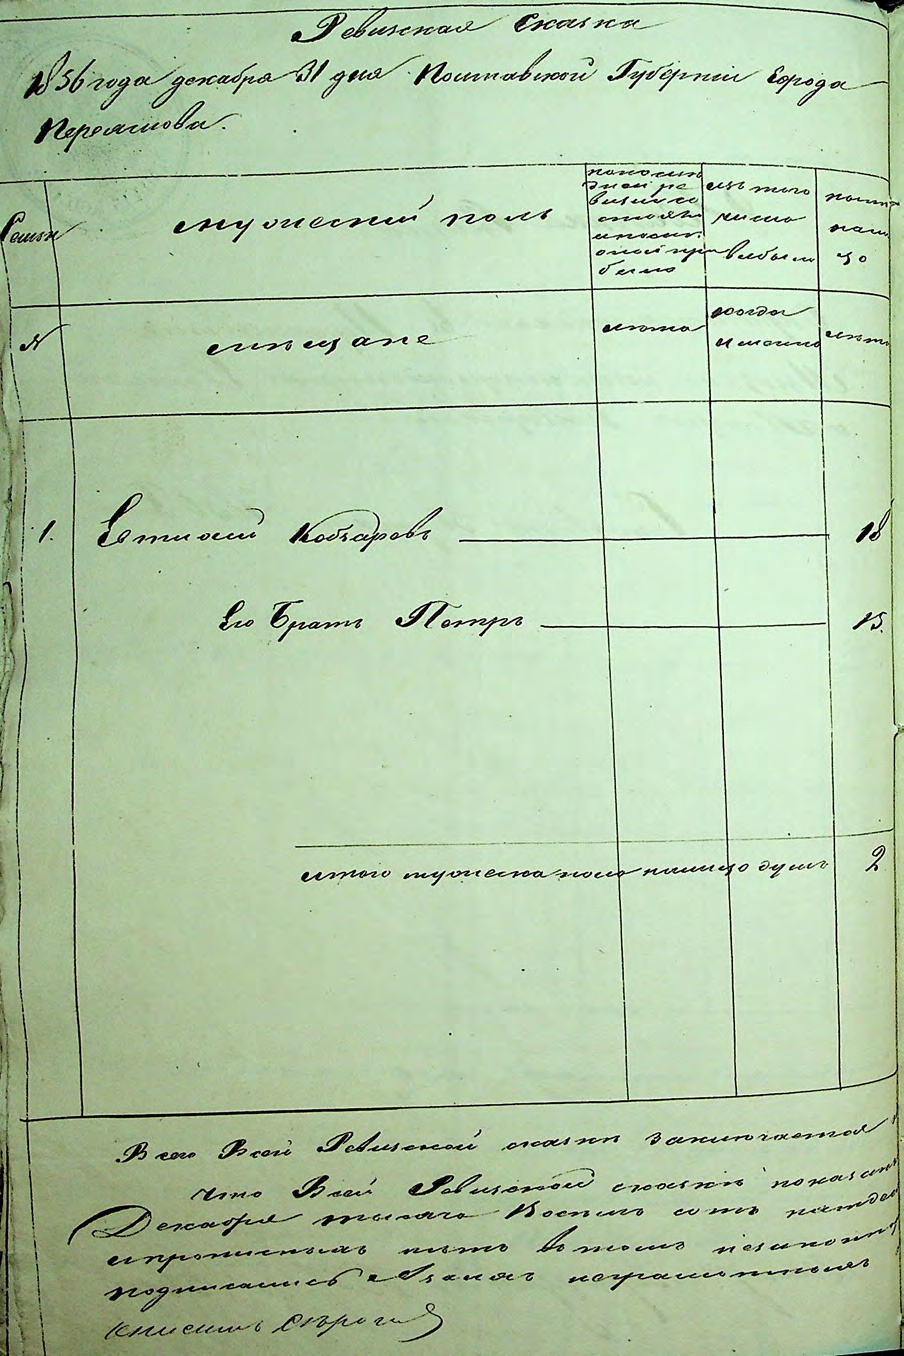 Ревизская Сказка
1856 года декабря 31 дня Полтавской Губернии Города
Переяслова.
Семьи
мужеский полъ
по послед
ней ре
визии со
стояло
и после
оной при
было
изъ того
числа
выбыло
ныне
на ли
цо
№
мещане
лета
когда
именно
лета
1. Евтихий Кобзаревъ 18
Его Братъ Петръ 15.
итого мужеска пола налицо душъ 2
Всего Всей Ревизской сказки заключается
что Всей Ревизской сказки показаны
Декабря тысяча Восемь сотъ
летъ в томъ
подписались неграмотныхъ